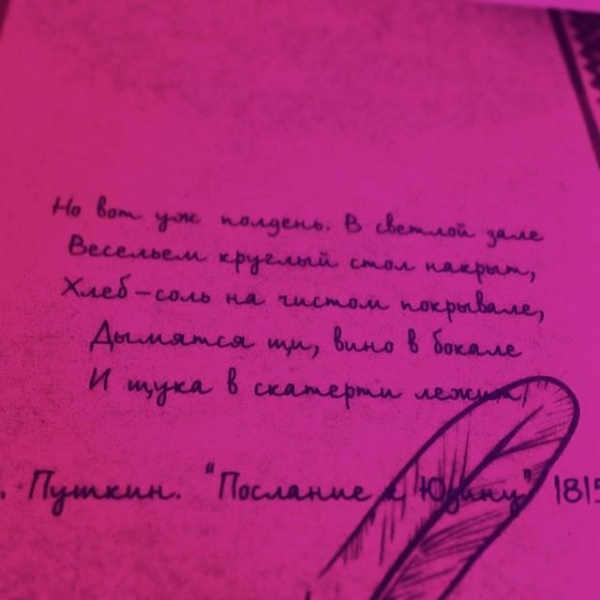 Но вот уж полдень. В светлой зале
Весельем круглый стол накрыт,
Хлеб-соль на чистом покрывале,
Дымятся щи, вино в бокале
И щука в скатерти лежит,
. Пушкин. "Послание к Юдину" 1815